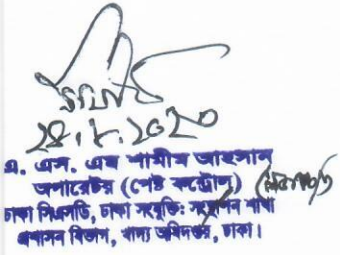 ২৪.৮.2020
এ. এস. এম শামীম আহসান
অপারেটর (পেষ্ট কন্ট্রোল)
ঢাকা সিএসডি, ঢাকা সংযুক্তি: সংস্থাপন শাখা
প্রশাসন বিভাগ, খাদ্য অধিদপ্তর, ঢাকা।